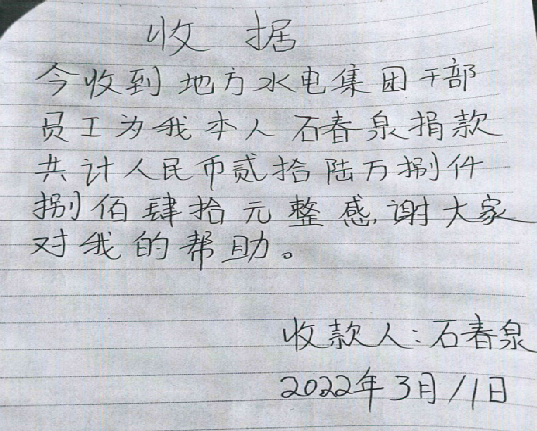 收据
今收到地方水电集团干部
员工为我本人石春泉捐款
共计人民币贰拾陆万捌件
捌佰肆拾元整感谢大家
对我的帮助。
收款人:石春泉
2022年3月11日